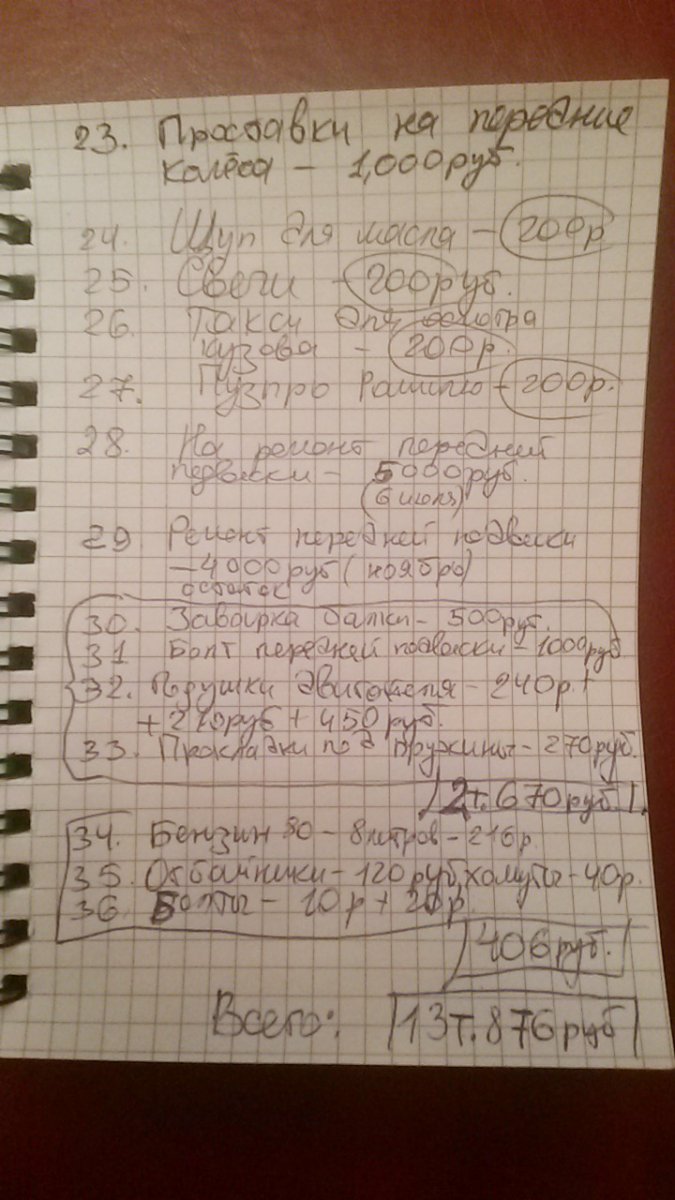 23. Проставки на передние
колёса – 1,000 руб.
24. Щуп для масла – 200р
25. Свечи – 200руб.
26. Такси для осмотра
кузова – 200р.
27. – 200р.
28. На ремонт передней
подвески – 5000руб.
(6 июля)
29 Ремонт передней подвески
– 4000руб (ноябрь)
остаток
30. Заварка балки – 500руб.
31 Болт передней подвески – 1000руб
32. Подушки двигателя – 240р. +
+ 210руб + 450руб.
33. Прокладки под пружины – 270руб.
2т. 670руб.
34. Бензин 80 – 8литров – 216р.
35. Отбойники – 120руб, хомуты – 40р.
36. Болты – 10р + 20р
406руб.
Всего: 13т. 876руб